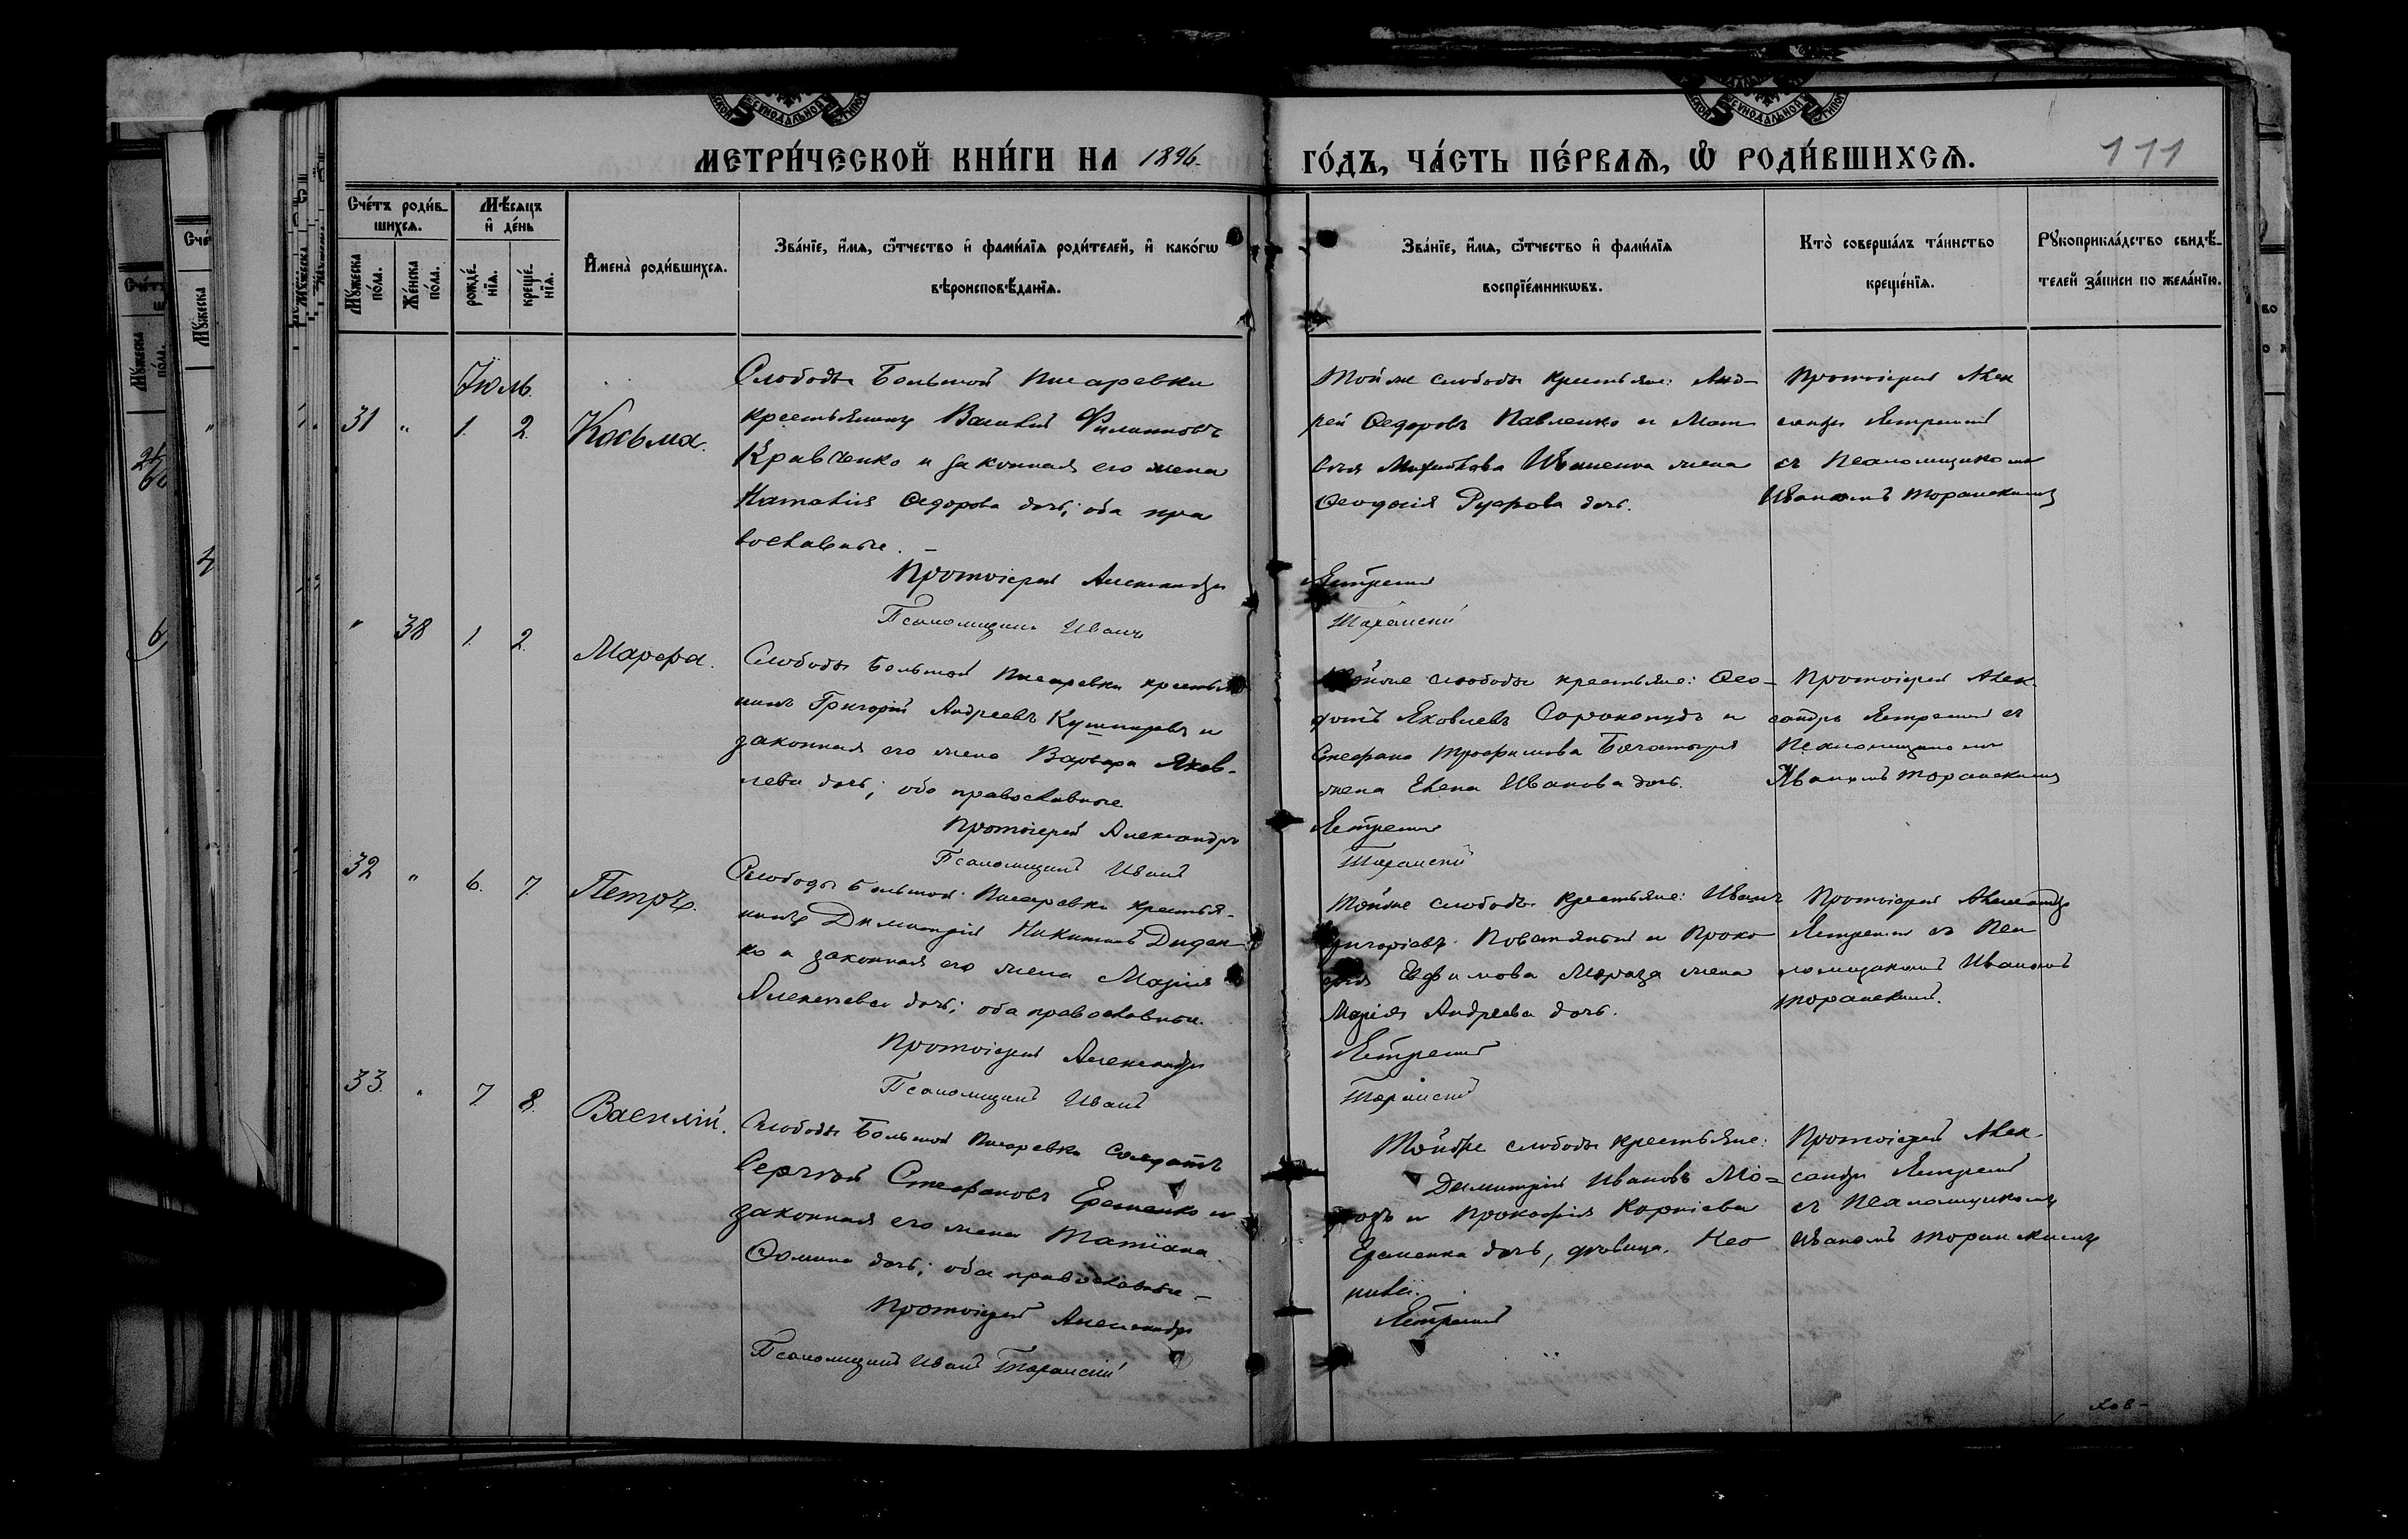 МЕТРИ́ЧЕСКОЙ КНИ́ГИ НА 1896.
ГО́ДЪ, ЧА́СТЬ ПЕ́РВАЯ, Ѡ РОДИ́ВШИХСЯ.
111
Сче́тъ роди́в-
шихся.
Мꙋ́жеска по́ла.
Же́нска по́ла.
Мѣ́сяцъ
и҆ де́нь
рожде́-
нїя.
креще́-
нїя.
И҆мена̀ роди́вшихся.
Зва́нїе, и҆́мя, ѻ҆́тчество и҆ фами́лїя роди́телей, и҆ како́гѡ
вѣроисповѣ́данїя.
Зва́нїе, и҆́мя, ѻ҆́тчество и҆ фами́лїя
воспрїе́мникѡвъ.
Кто̀ соверша́лъ та́инство
креще́нїя.
Рꙋкоприкла́дство свидѣ́-
телей за́писи по жела́нїю.
Іюль.
31 " 1. 2. Косьма.
Слободы Большой Писаревки
крестьянинъ Василій Филипповъ
Кравченко и законная его жена
Наталія Ѳедорова дочь; оба пра
вославные.
Протоіерей Александръ
Псаломщикъ Иванъ
Той же слободы крестьяне: Анд-
рей Ѳедоровъ Павленко и Мат
жена
Ѳеодосія дочь.
Торанскій
Протоіерей Алек
сандръ
съ Псаломщикомъ
Иваномъ Торанскимъ
" 38 1. 2. Марѳа.
Слободы Большой Писаревки крестья
нинъ Григорій Андреевъ и
законная его жена Варвара Яков-
лева дочь; оба православные
Протоіерей Александръ
Псаломщикъ Иванъ
Тойже слободы крестьяне: Ѳео-
дотъ Яковлевъ Сорокопудъ и
Стефана Трофимова
жена Елена Иванова дочь.
Торанскій
Протоіерей Алек-
сандръ съ
Псаломщикомъ
Иваномъ Торанскимъ
32 " 6. 7. Петръ.
Слободы Большой Писаревки крестья-
нинъ Димитрій Никитинъ Диден
ко и законная его жена Марія
Алексеева дочь; оба православные.
Протоіерей Александръ
Псаломщикъ Иванъ
Тойже слободы крестьяне: Иванъ
Григоріевъ и Проко
фія Ефимова Мороза жена
Марія Андреева дочь.
Торанскій
Протоіерей Александръ
съ Пса
ломщикомъ Иваномъ
Торанскимъ.
33. " 7. 8. Василій.
Слободы Большой Писаревки солдатъ
Сергѣй Стефановъ Еременко и
законная его жена Татіана
Ѳомина дочь; оба православные –
Протоіерей Александръ
Псаломщикъ Иванъ Торанскій
Тойже слободы крестьяне:
Димитрій Ивановъ Мо-
розъ и Прокофія Корніева
Еременка дочь, дѣвица,
Протоіерей Алек-
сандръ
съ Псаломщикомъ
Иваномъ Торанскимъ